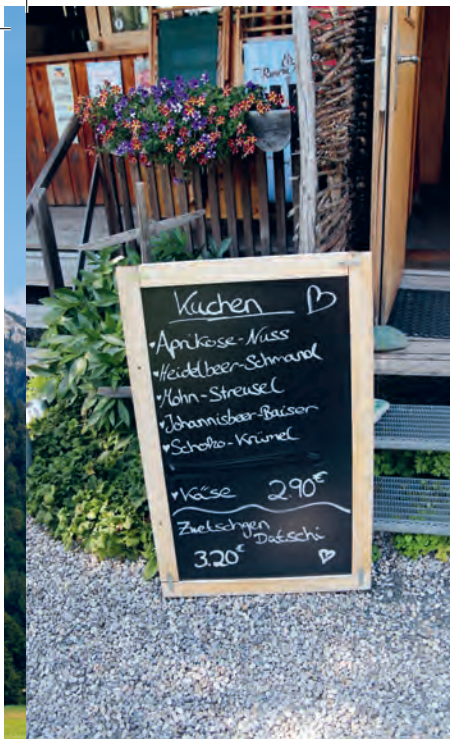 Kuchen
Aprikose-Nuss
Heidelbeer-Schmand
Mohn-Streusel
Johannisbeer-Baiser
Schoko-Krümel
Käse 2.90€
Zwetschgen
Datschi
3.20€